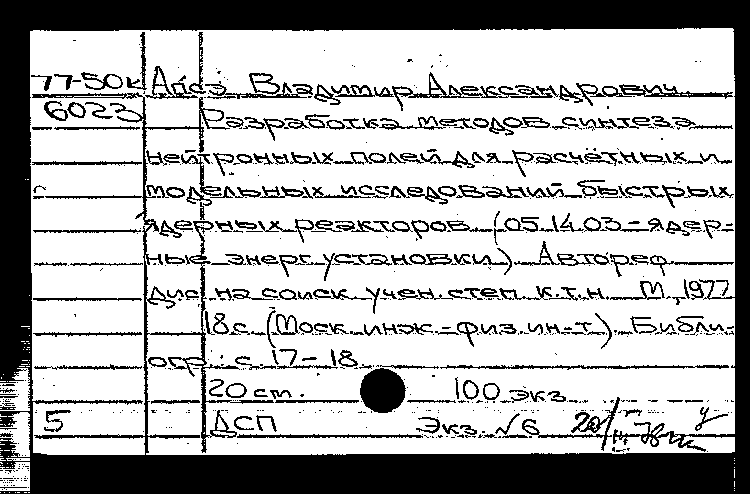 77-50к Апсэ Владимир Александрович
6023 Разработка методов синтеза
нейтронных полей для расчётных и
модельных исследований быстрых
ядерных реакторов (05.14.03-ядер-
ные энерг установки) Автореф.
дис. на соиск учен. степ. к.т.н М., 1977
18с. (Моск. инж-физ. ин-т). Библи-
огр.: с. 17-18
20 ст. 100 экз
5 ДСП Экз. №6 20/III-78